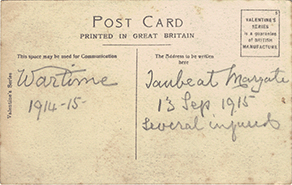 POST CARD
PRINTED IN GREAT BRITAIN
VALENTINE'S
SERIES
is a guarantee
of BRITISH
MANUFACTURE
This space may be used for Communication
The Address to be written
here
Valentine's Series
Wartime
1914-15-
Taubeat Margate
13 Sep 1915
Several injured